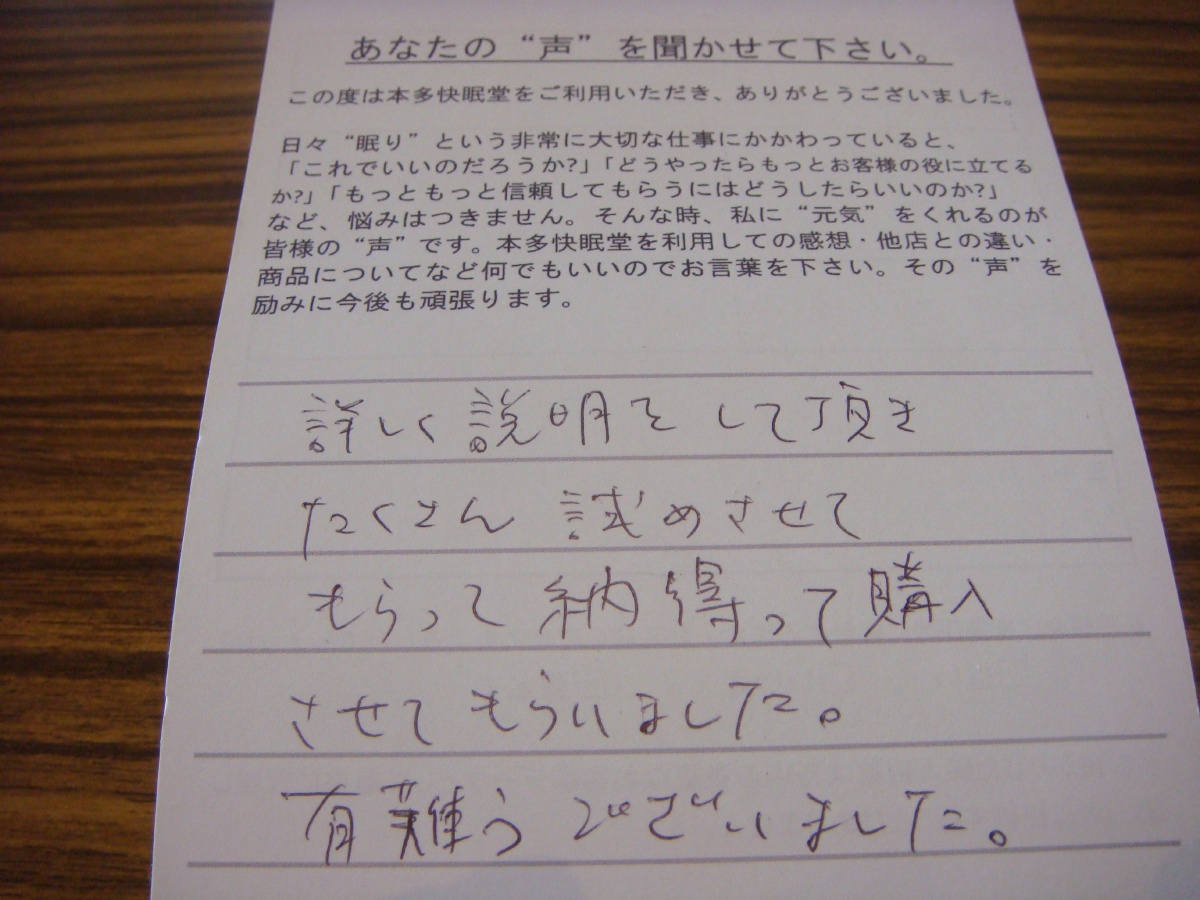 あなたの“声”を聞かせて下さい。
この度は本多快眠堂をご利用いただき、ありがとうございました。
日々“眠り”という非常に大切な仕事にかかわっていると、
「これでいいのだろうか?」「どうやったらもっとお客様の役に立てる
か?」「もっともっと信頼してもらうにはどうしたらいいのか?」
など、悩みはつきません。そんな時、私に“元気”をくれるのが
皆様の“声”です。本多快眠堂を利用しての感想・他店との違い・
商品についてなど何でもいいのでお言葉を下さい。その“声”を
励みに今後も頑張ります。
詳しく説明をして頂き
たくさん試めさせて
もらって納得って購入
させてもらいました。
有難うございました。